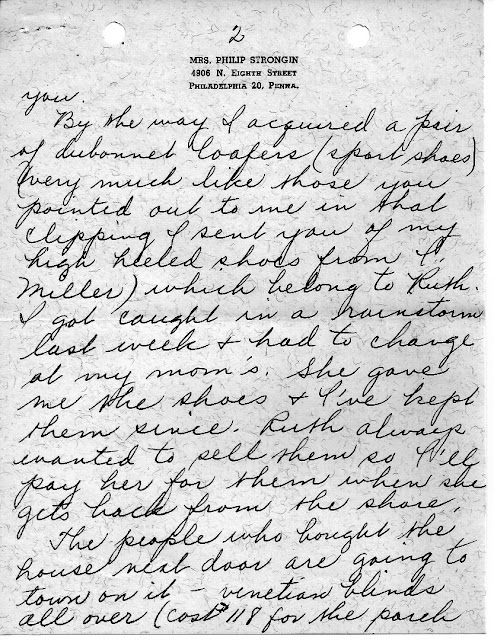 2
MRS. PHILIP STRONGIN
4906 N. EIGHTH STREET
PHILADELPHIA 20, PENNA.
you.
By the way I acquired a pair
of dubonnet loafers (sport shoes)
(very much like those you
pointed out to me in that
clipping I sent you of my
high heeled shoes from I.
Miller) which belong to Ruth.
I got caught in a rainstorm
last week & had to change
at my mom's. She gave
me the shoes & I've kept
them since. Ruth always
wanted to sell them so I'll
pay her for them when she
gets back from the shore.
The people who bought the
house next door are going to
town on it - venetian blinds
all over (cost $118 for the porch